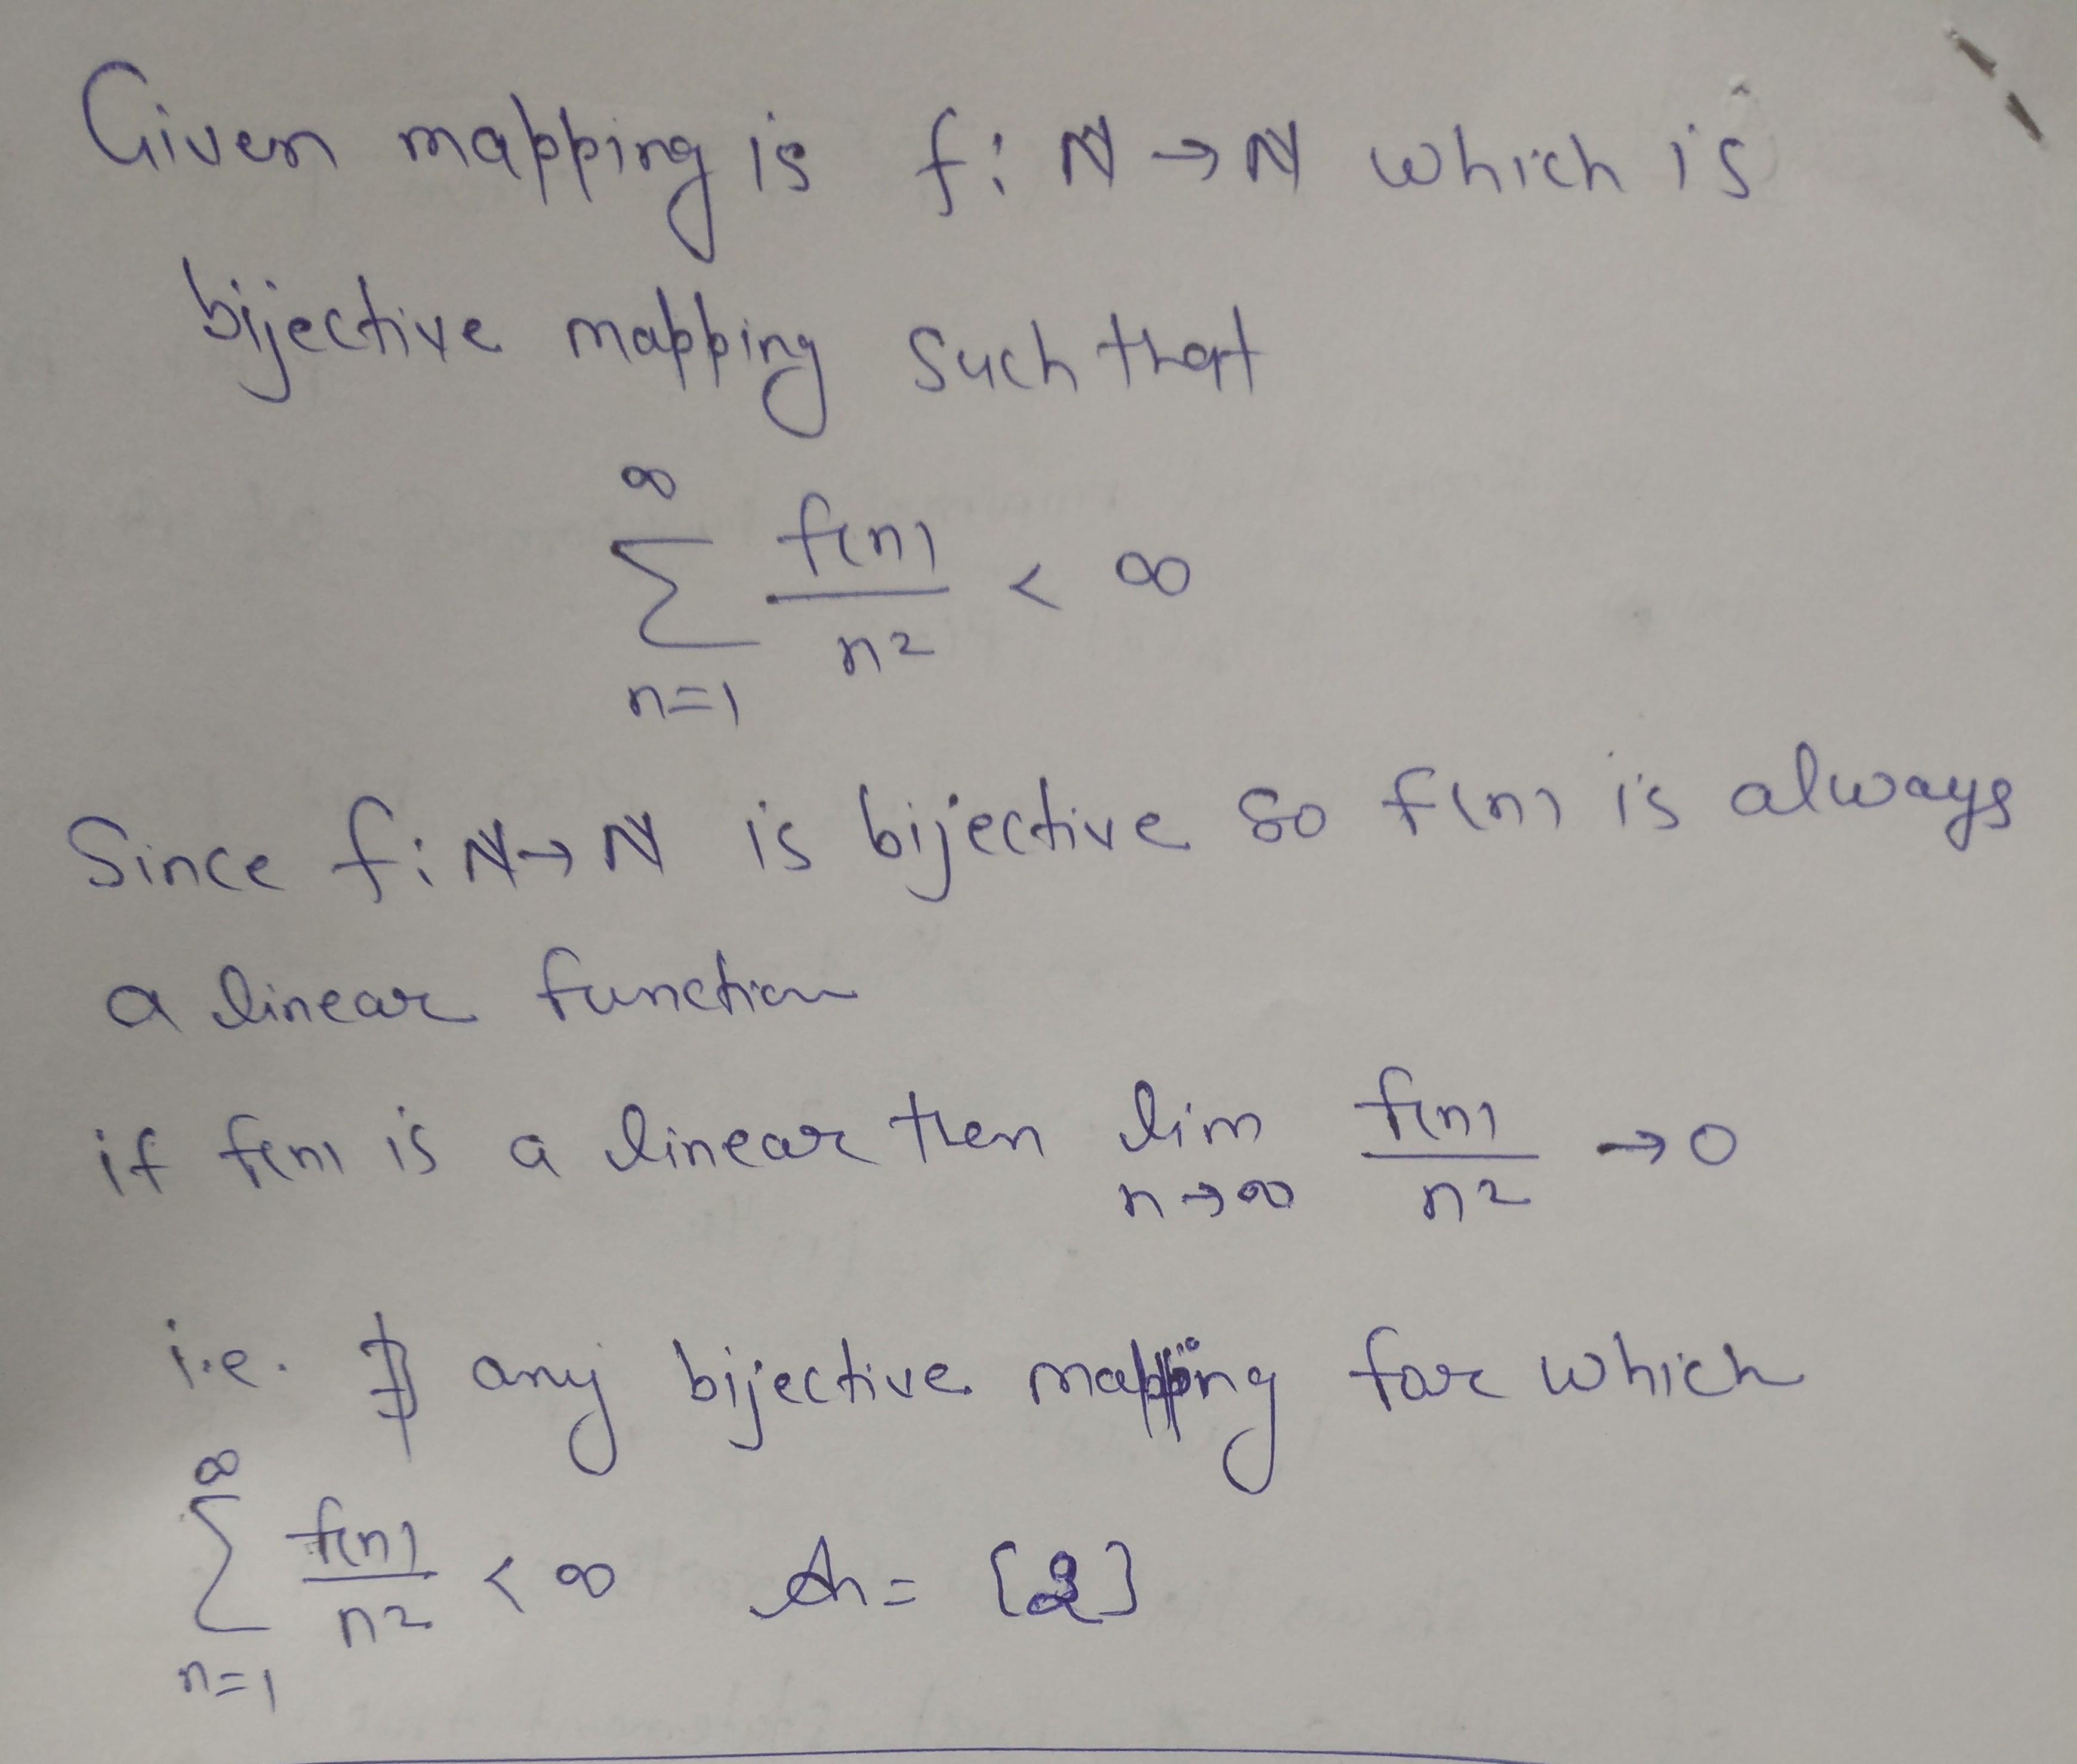 Given mapping is f: ℕ → ℕ which is
bijective mapping such that
∞
∑ f(n)/n² < ∞
n=1
Since f: ℕ → ℕ is bijective so f(n) is always
a linear function
if f(n) is a linear then lim n→∞ f(n)/n² → 0
i.e. ∄ any bijective mapping for which
∞
∑ f(n)/n² < ∞ An = [2]
n=1